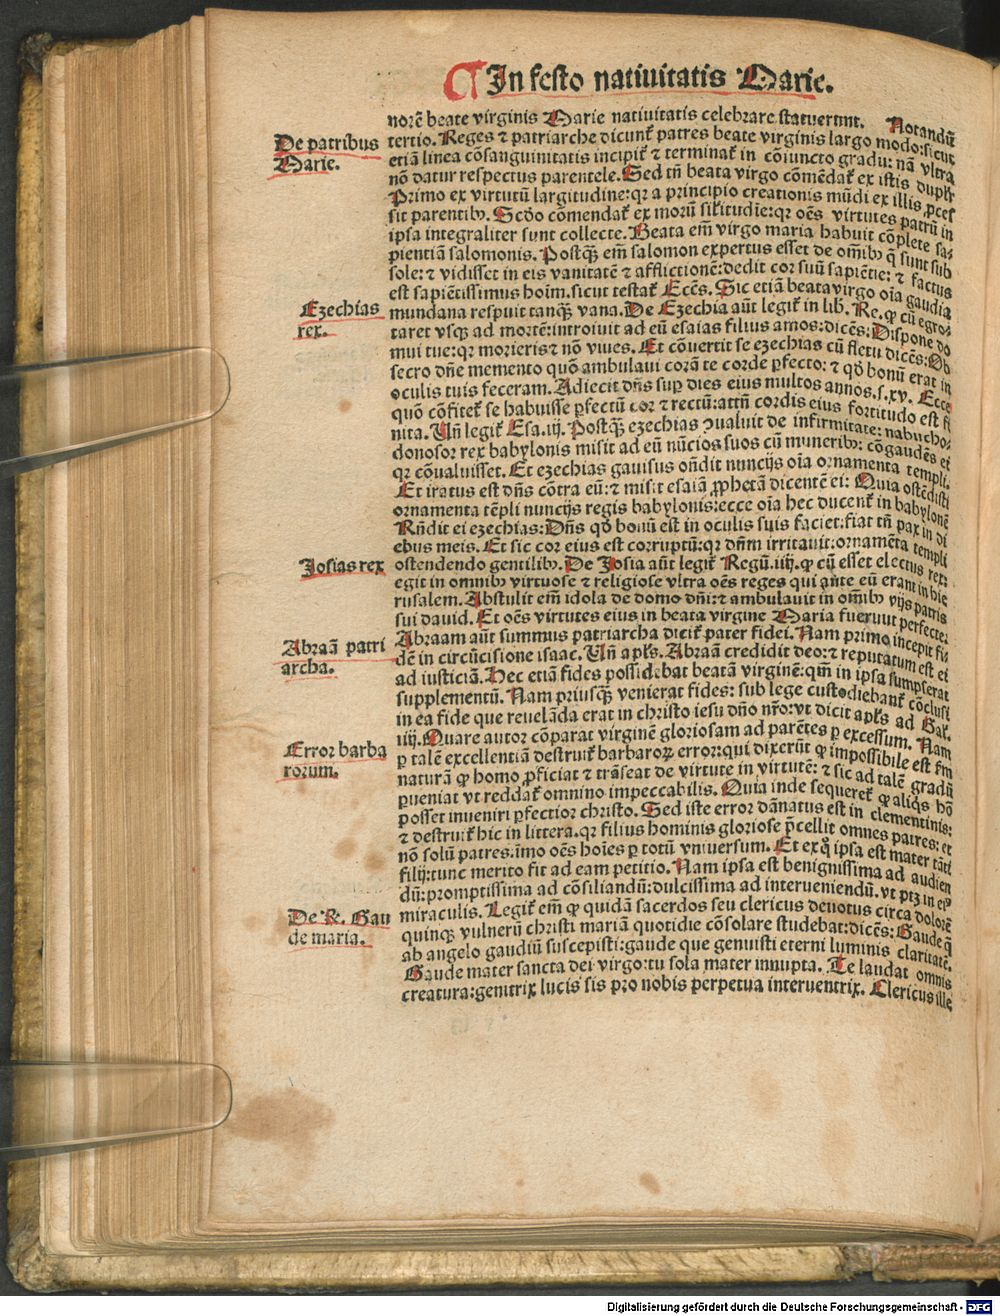 ¶ In festo natiuitatis Marie.
norē beate virginis Marie natiuitatis celebrare statuerunt. Notandū
De patribus
Marie.
tertio. Reges ⁊ patriarche dicunt᷑ patres beate virginis largo modo: sicut
etiā linea cōsanguinitatis incipit᷑ ⁊ terminat᷑ in cōiuncto gradu: nā vltra
nō datur respectus parentele. Sed tñ beata virgo cōmēdat᷑ ex istis duplr̄
Primo ex virtutū largitudine: qꝛ a principio creationis mūdi ex illis ꝓcef
sit parentibꝫ. Scďo cōmendat᷑ ex morū silitudīe: qꝛ oēs virtutes patrū in
ipsa integraliter sunt collecte. Beata em̄ virgo maria habuit cōplete sa-
pientiā salomonis. Postqꝫ em̄ salomon expertus esset de oībꝫ q̄ sunt sub
sole: ⁊ vidisset in eis vanitatē ⁊ afflictionē: dedit cor suū sapiētie: ⁊ factus
est sapiētissimus hoīm. sicut testat᷑ Eccēs. Sic etiā beata virgo oīa gaudia
Ezechias
rex.
mundana respuit tanqꝫ vana. De Ezechia aūt legit᷑ in lib. Re. ꝙ cū egro-
taret vsqꝫ ad mortē: introiuit ad eū esaias filius amos: dicēs: Dispone do
mui tue: qꝛ morieris ⁊ nō viues. Et cōuertit se ezechias cū fletu dicēs: Ob
secro dn̄e memento quō ambulaui corā te corde ꝑfecto: ⁊ qď bonū erat in
oculis tuis feceram. Adiecit dn̄s suꝑ dies eius multos annos. s. xv. Ecce
quō cōfitet᷑ se habuisse ꝑfectū cor ⁊ rectū: attn̄ cordis eius fortitudo est fi
nita. Vn̄ legit᷑ Esa. iij. Postqꝫ ezechias ꝯualuit de infirmitate: nabucho-
donosor rex babylonis misit ad eū nūcios suos cū muneribꝫ: cōgaudēs ei
qꝛ cōualuisset. Et ezechias gauisus on̄dit nuncijs oīa ornamenta templi.
Et iratus est dn̄s cōtra eū: ⁊ misit esaiā ꝓphetā dicentē ei: Quia ostēdisti
ornamenta tēpli nuncijs regis babylonis: ecce oīa hec ducent᷑ in babylonē
Rn̄dit ei ezechias: Dn̄s qď bonū est in oculis suis faciet: fiat tn̄ pax in di
ebus meis. Et sic cor eius est corruptū: qꝛ dn̄m irritauit: ornamēta templi
Josias rex
ostendendo gentilibꝫ. De Josia aūt legit᷑ Regū. iiij. ꝙ cū esset electus rex:
egit in omnibꝫ virtuose ⁊ religiose vltra oēs reges qui ante eū erant in hie
rusalem. Abstulit em̄ idola de domo dn̄i: ⁊ ambulauit in omībꝫ vijs patris
sui dauid. Et oēs virtutes eius in beata virgine Maria fueruut perfecte.
Abraā patri
archa.
Abraam aūt summus patriarcha dicit᷑ pater fidei. Nam primo incepit fi
dē in circūcisione isaac. Vn̄ apl̄s. Abraā credidit deo: ⁊ reputatum est ei
ad iusticiā. Hec etiā fides possidebat beatā virginē: qm̄ in ipsa sumpserat
supplementū. Nam priusqꝫ venierat fides: sub lege custodiebant᷑ cōclusi
in ea fide que reuelāda erat in christo iesu dn̄o nr̄o: vt dicit apl̄s ad Gal.
iiij. Quare autor cōparat virginē gloriosam ad parētes ꝑ excessum. Nam
Error barba
rorum.
ꝑ talē excellentiā destruit᷑ barbaroꝝ error: qui dixerūt ꝙ impossibile est ẜm
naturā ꝙ homo ꝓficiat ⁊ trāseat de virtute in virtutē: ⁊ sic ad talē gradū
ꝑueniat vt reddat᷑ omnino impeccabilis. Quia inde sequeret᷑ ꝙ aliqs hō
posset inueniri ꝑfectior christo. Sed iste error dānatus est in clementinis:
⁊ destruit᷑ hic in littera. qꝛ filius hominis gloriose p̄cellit omnes patres: et
nō solū patres. īmo oēs hoīes ꝑ totū vniuersum. Et exq̊ ipsa est mater tāti
filij: tunc merito fit ad eam petitio. Nam ipsa est benignissima ad audien
dū: promptissima ad cōsiliandū: dulcissima ad interueniendū. vt ptꝫ in eiꝰ
De R. Gau
de maria.
miraculis. Legit᷑ em̄ ꝙ quidā sacerdos seu clericus deuotus circa dolorē
quinqꝫ vulnerū christi mariā quotidie cōsolare studebat: dicēs: Gaude q̄
ab angelo gaudiū suscepisti: gaude que genuisti eterni luminis claritatē.
Gaude mater sancta dei virgo: tu sola mater innupta. Te laudat omnis
creatura: genitrix lucis sis pro nobis perpetua interuentrix. Clericus ille
Digitalisierung gefördert durch die Deutsche Forschungsgemeinschaft - DFG